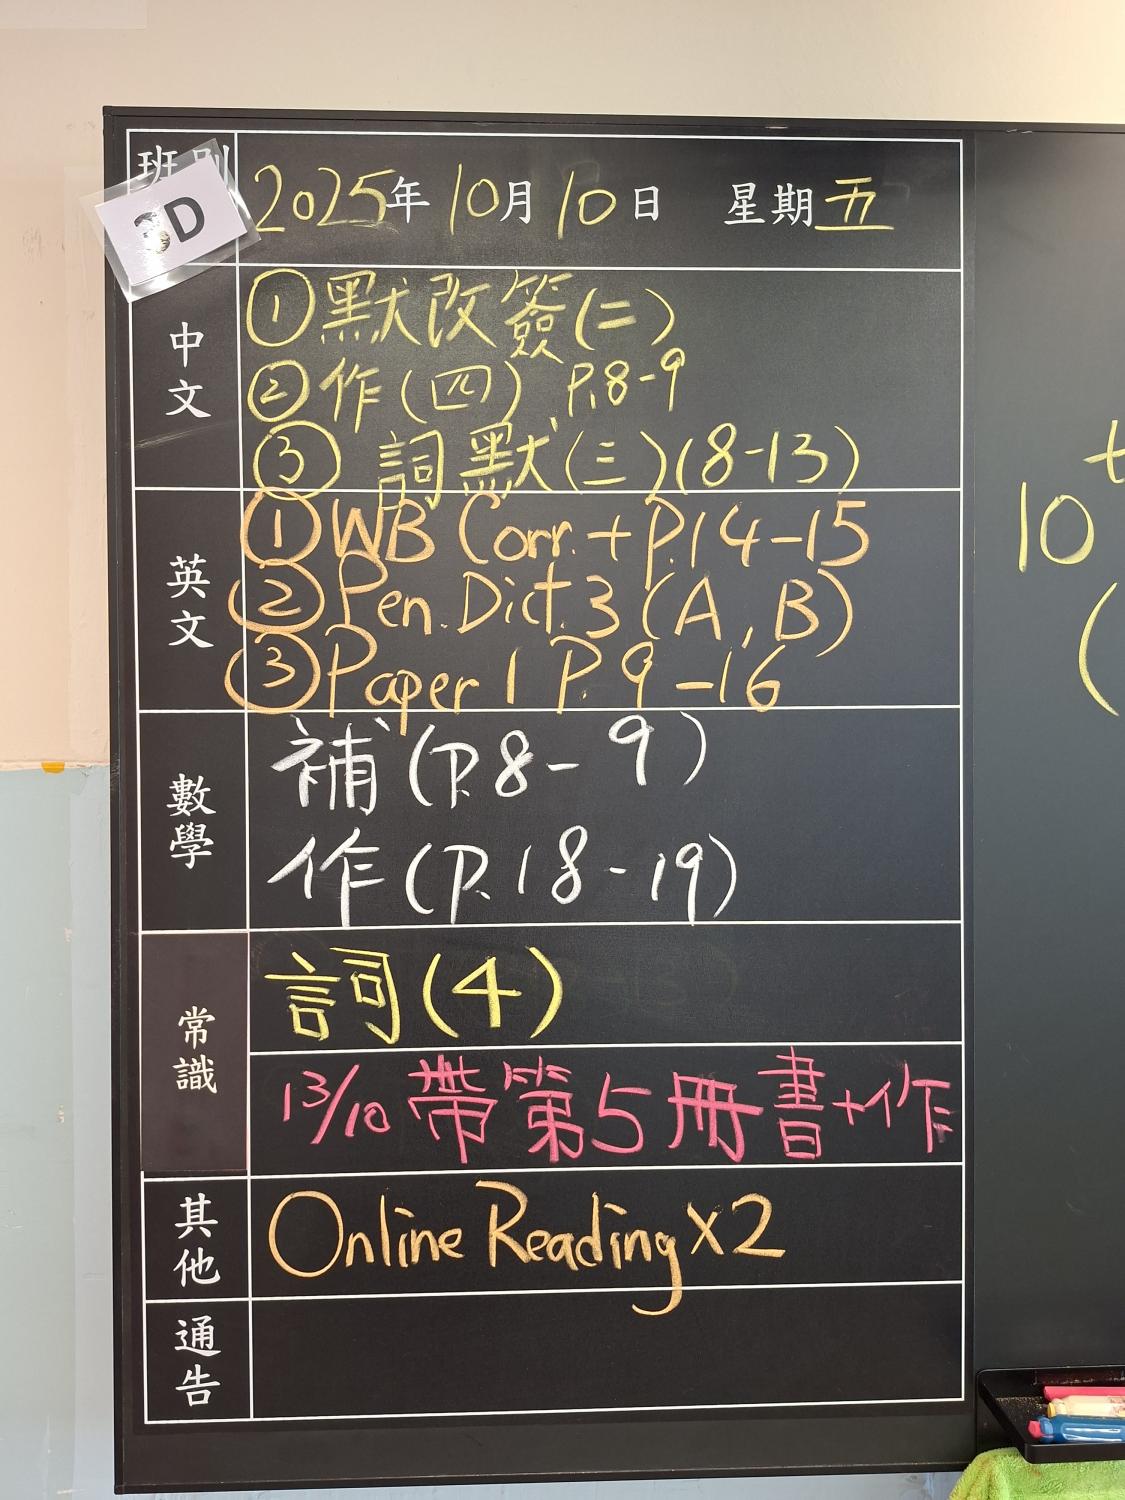 班別
3D
2025年 10月 10日 星期五
中文
①默改簽(二)
②作(四) P.8-9
③ 詞默(三)(8-13)
英文
①WB Corr. + P.14-15
②Pen. Dict. 3 (A, B)
③Paper 1 P. 9-16
數學
補(P.8-9)
作(P.18-19)
常識
詞(4)
13/10 帶第5冊書+作
其他
Online Reading x2
通告
10